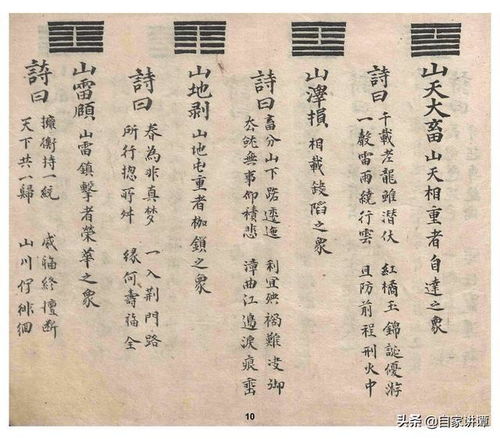 山天大畜 山天相重者自達之象
詩曰 千載老龍雖潜伏 紅橘玉錦誕優游
一聲雷雨繞行雲 且防前程刑火中
山澤損 相載錢陷之象
詩曰 畜分山下路逶迤 利宜
無事仰積悲 漳曲江邉淚痕
山地剥 山地屯重者枷鎖之象
詩曰 春為非真梦 一入荆門路
所行揔所舛 緣何壽福全
山雷頤 山雷鎮擊者榮華之象
詩曰 擁衡持一統 威福終擅断
天下共一歸 山川俘徘徊
10
头条 @自家讲谭